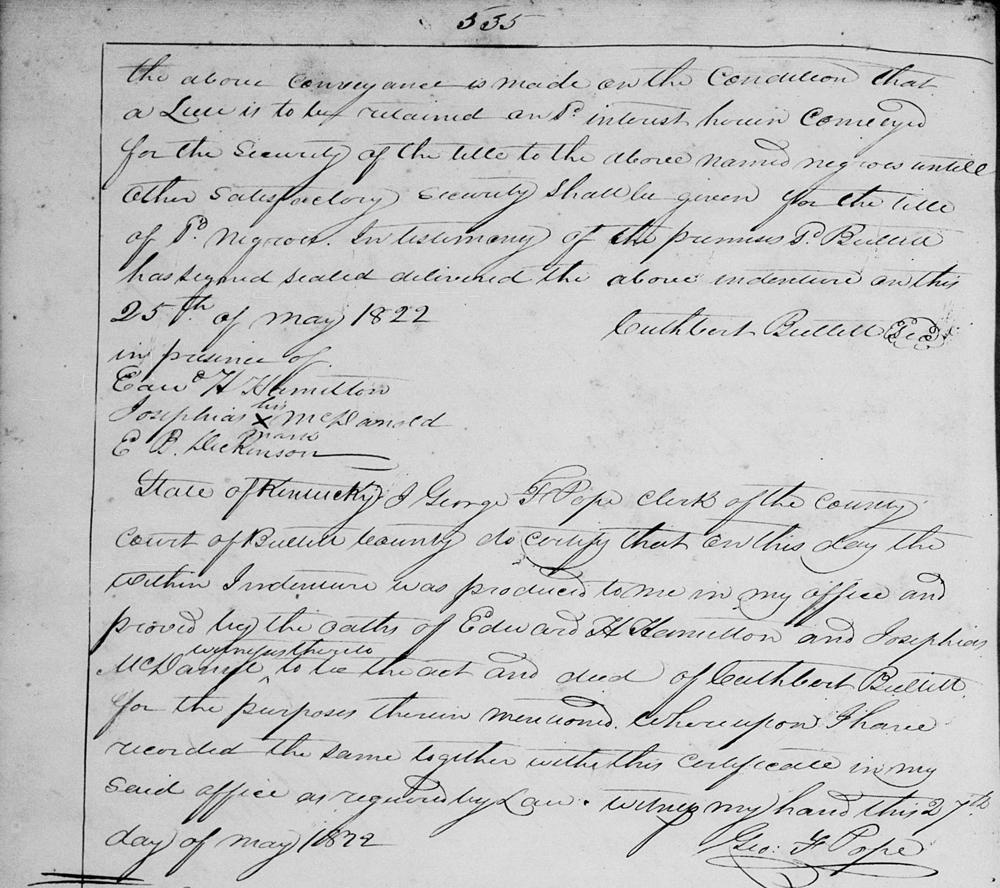 535
the above Conveyance is made on the Condition that
a Lien is to be retained on sd. interest herein Conveyed
for the Security of the title to the above named negroes untill
other Satisfactory Security Shall be given for the title
of sd. Negroes. In testimony of the premises sd. Bullitt
has signed sealed delivered the above indenture on this
25th of may 1822 Cuthbert Bullitt
in presence of
Edwd H Hamilton
Josephias his X mark McDanold
E B. Dickinson
State of Kentucky, I George F Pope clerk of the county
Court of Bullitt County do certify that on this day the
within Indenture was produced to me in my office and
proved by the oaths of Edward H. Hamilton and Josephias
McDanold witnesses thereto to be the act and deed of Cuthbert Bullitt
for the purposes therein mentioned. Whereupon I have
recorded the same together with this Certificate in my
said office as required by Law. Witness my hand this 27th
day of may 1822 Geo: F Pope